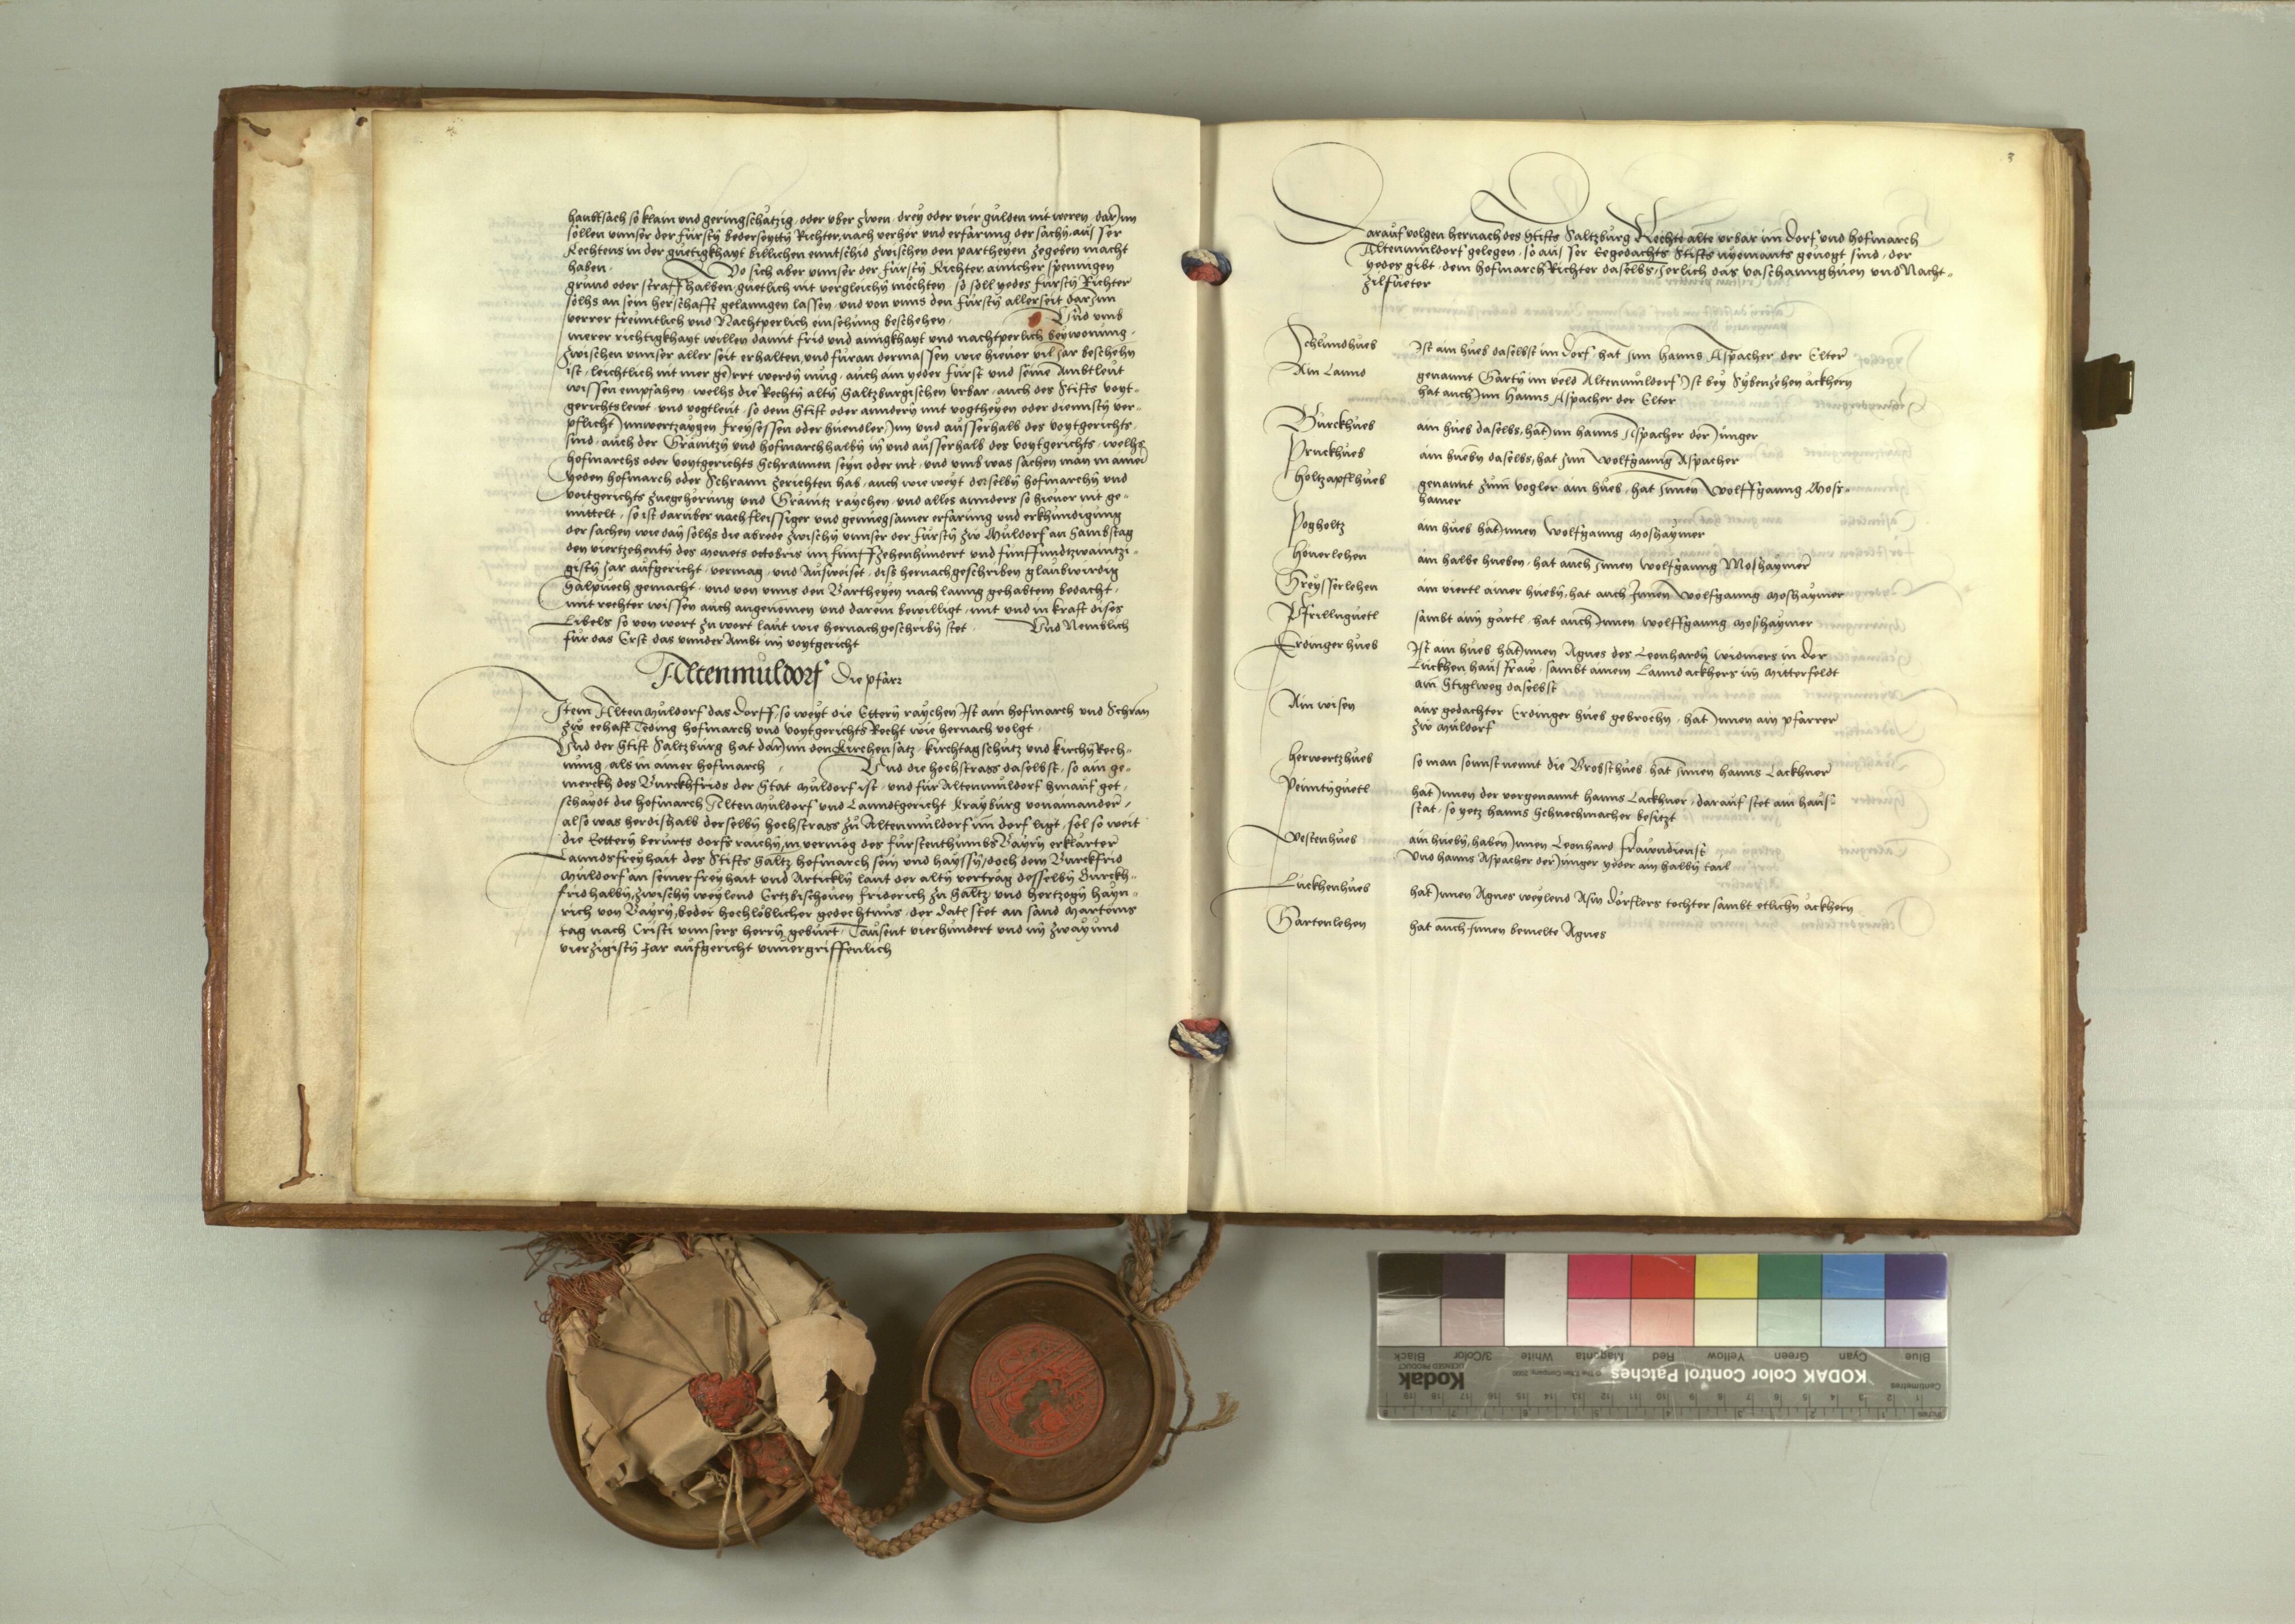 haubtsach so klain und geringschätzig, oder uber zwen, drey oder vier gulden nit weren, darJnn
sollen unnser der fürstn bederseyttn Richter, nach verhör und erfarung der sachn, ausser
Rechtens in der guetigkhayt billichen enntschid zwischen den partheyen zegeben macht
haben. Wo sich aber unnser der fürstn Richter ainicher spenningen
grund oder straffhalben guetlich nit vergleichn möchten, so soll yedes fürstn Richter
solhs an sein herschafft gelanngen lassen, und von unns den fürstn allerseit darJnn
verrer freuntlich und Nachtperlich einsehung beschehen. Und umb
merer richtigkhayt willen damit frid und ainigkhayt und nachtperlich beywonung,
zwischen unnser aller seit erhalten, und füran dermassen wie hievor vil Jar beschehn
ist, leichtlich nit mer geJrrt werdn mug, auch ain yeder fürst und seine Ambtleüt
wissen empfahen, welhs die Rechtn altn Saltzburgischen urbar, auch des Stifts voyt-
gerichtslewt, und vogtleüt, so dem Stift oder anndern mit vogtheyen oder diennstn ver-
pflicht Jnnwertzaygen freysessen oder huendler Jnn und ausserhalb des voytgerichts,
sind, auch der Gränitzn und hofmarchhalbn in und ausserhalb des voytgerichts, welhs
hofmarchs oder voytgerichts Schrannen seyn oder nit, und umb was sachen man in ainer
yeden hofmarch oder Schrann zerichten hab, auch wie weyt derselbn hofmarchn und
voitgerichts zuegehörung und Gränitz raychen, und alles annders so hievor nit ge-
mittelt, so ist darüber nach fleissiger und genuegsamer erfarung und erkhundigung
der sachen wie dan solhs die abrede zwischn unnser der fürstn zw Muldorf an Sambstag
den viertzehentn des monets octobris im funffzehenhundert und funffundtzwaintzi-
gistn Jar aufgericht, vermag, und Ausweiset, diss hernachgeschriben glaubwirdig
Salpuech gemacht, und von unns den Partheyen nach lanng gehabtem bedacht,
mit rechter wissen auch angenomen und darein bewilligt, mit und in kraft dises
Libels so von wort zu wort laut wie hernachgeschribn stet. Und Nemblich
für das Erst das unnder Ambt im voytgericht
Altenmuldorf Die pfarr
Item Altenmuldorf das dorff, so weyt die Ettern raychen Ist ain hofmarch und Schran
zw eehaft Teding hofmarch und voytgerichts Recht wie hernach volgt.
Und der Stift Saltzburg hat darJnn den Kirchensatz, kirchtagschutz und kirchn Rech-
nung, als in ainer hofmarch. Und die hochstrass daselbst, so ain ge-
merckh des Burckhfrids der Stat Muldorf ist, und für Altenmuldorf hinauf get,
schaydt die hofmarch Altenmuldorf und Lanndtgericht Krayburg vonainander,
also was herdishalb derselbn hochstrass zu Altenmuldorf im dorf ligt, sol so weit
die Ettern berürts dorfs raichn, in vermög des fürstenthumbs Bayrn erklärter
Lanndsfreyhait des Stifts Saltz hofmarch sein und hayssn, doch dem Burckfrid
Muldorf an seiner freyhait und Articklн laut der altn verträg desselbn Burckh-
fridhalbn, zwischn weylend Ertzbischoven Friderich zu Saltz, und hertzogn hayn-
rich von Bayrn, beder hochlöblicher gedechtnus, der datl stet an sand Marteins
tag nach Cristi unnsers herrn geburt, Tausent vierhundert und im zwayund
vierzigistn Jar aufgericht unvergriffenlich
3
Darauf volgen hernach des Stifts Saltzburg Rechte alte urbar im Dorf und hofmarch
Altenmuldorf gelegen, so ausser Eegedachts Stifts nyemants genogt sind, der
yedes gibt, dem hofmarch Richter daselbs, Jerlich das vaschannghuen und Nacht-
zilfueter
Schlundhueb Ist ain hueb daselbst im dorf, hat Jnn hanns Aspacher der Elter
Ain Lannd genannt Gartn im veld Altenmuldorf Ist bey Sybenzehen äckhern
hat auch Jnn Hanns Aspacher der Elter
Burckhueb ain hueb daselbs, hat Jnn hanns Aspacher der Jünger
Pruckhueb ain huebn daselbs, hat Jnn Wolfganng Aspacher
Holtzapflhueb genannt zum Vogler ain hueb, hat Jnnen Wolffganng Mosz-
hamer
Pogholtz ain hueb hat Jnnen Wolfganng Moshaymer
Hönerlehen ain halbe hueben, hat auch Jnnen Wolfganng Moshaymer
Greysserlehen ain viertl ainer huebn, hat auch Jnnen Wolfganng Moshaymer
Pfrillnguetl sambt aim gärtl, hat auch Jnnen Wolffganng Moshaymer
Erdingerhueb Ist ain hueb hat Jnnen Agnes des Leonhardn Widmers in der
Luckhen hausfraw, sambt ainem Lanndackhers im Mitterfeldt
am Stiglweg daselbst
Ain wisen aus gedachter Erdinger hueb gebrochn, hat Jnnen ain pfarrer
zw Muldorf
Herwertzhueb so man sonnst nennt die Probsthueb hat Jnnen hanns Lackhner
Peintnguetl hat Jnnen der vorgenannt hanns Lackhner, darauf stet ain haus-
stat, so yetz hanns Schuechmacher besitzt
Vestenhueb ain huebn, haben Jnnen Leonhard frawndienst
und hanns Aspacher der Jünger yeder ain halbn tail
Luckhenhueb hat Jnnen Agnes weylend Asm dörflers tochter sambt etlichn äckhern
Gartenlehen hat auch Jnnen bemelte Agnes
KODAK Color Control Patches
Kodak
LICENSED PRODUCT
Blue Cyan Green Yellow Red Magenta White 3/Color Black
Centimetres